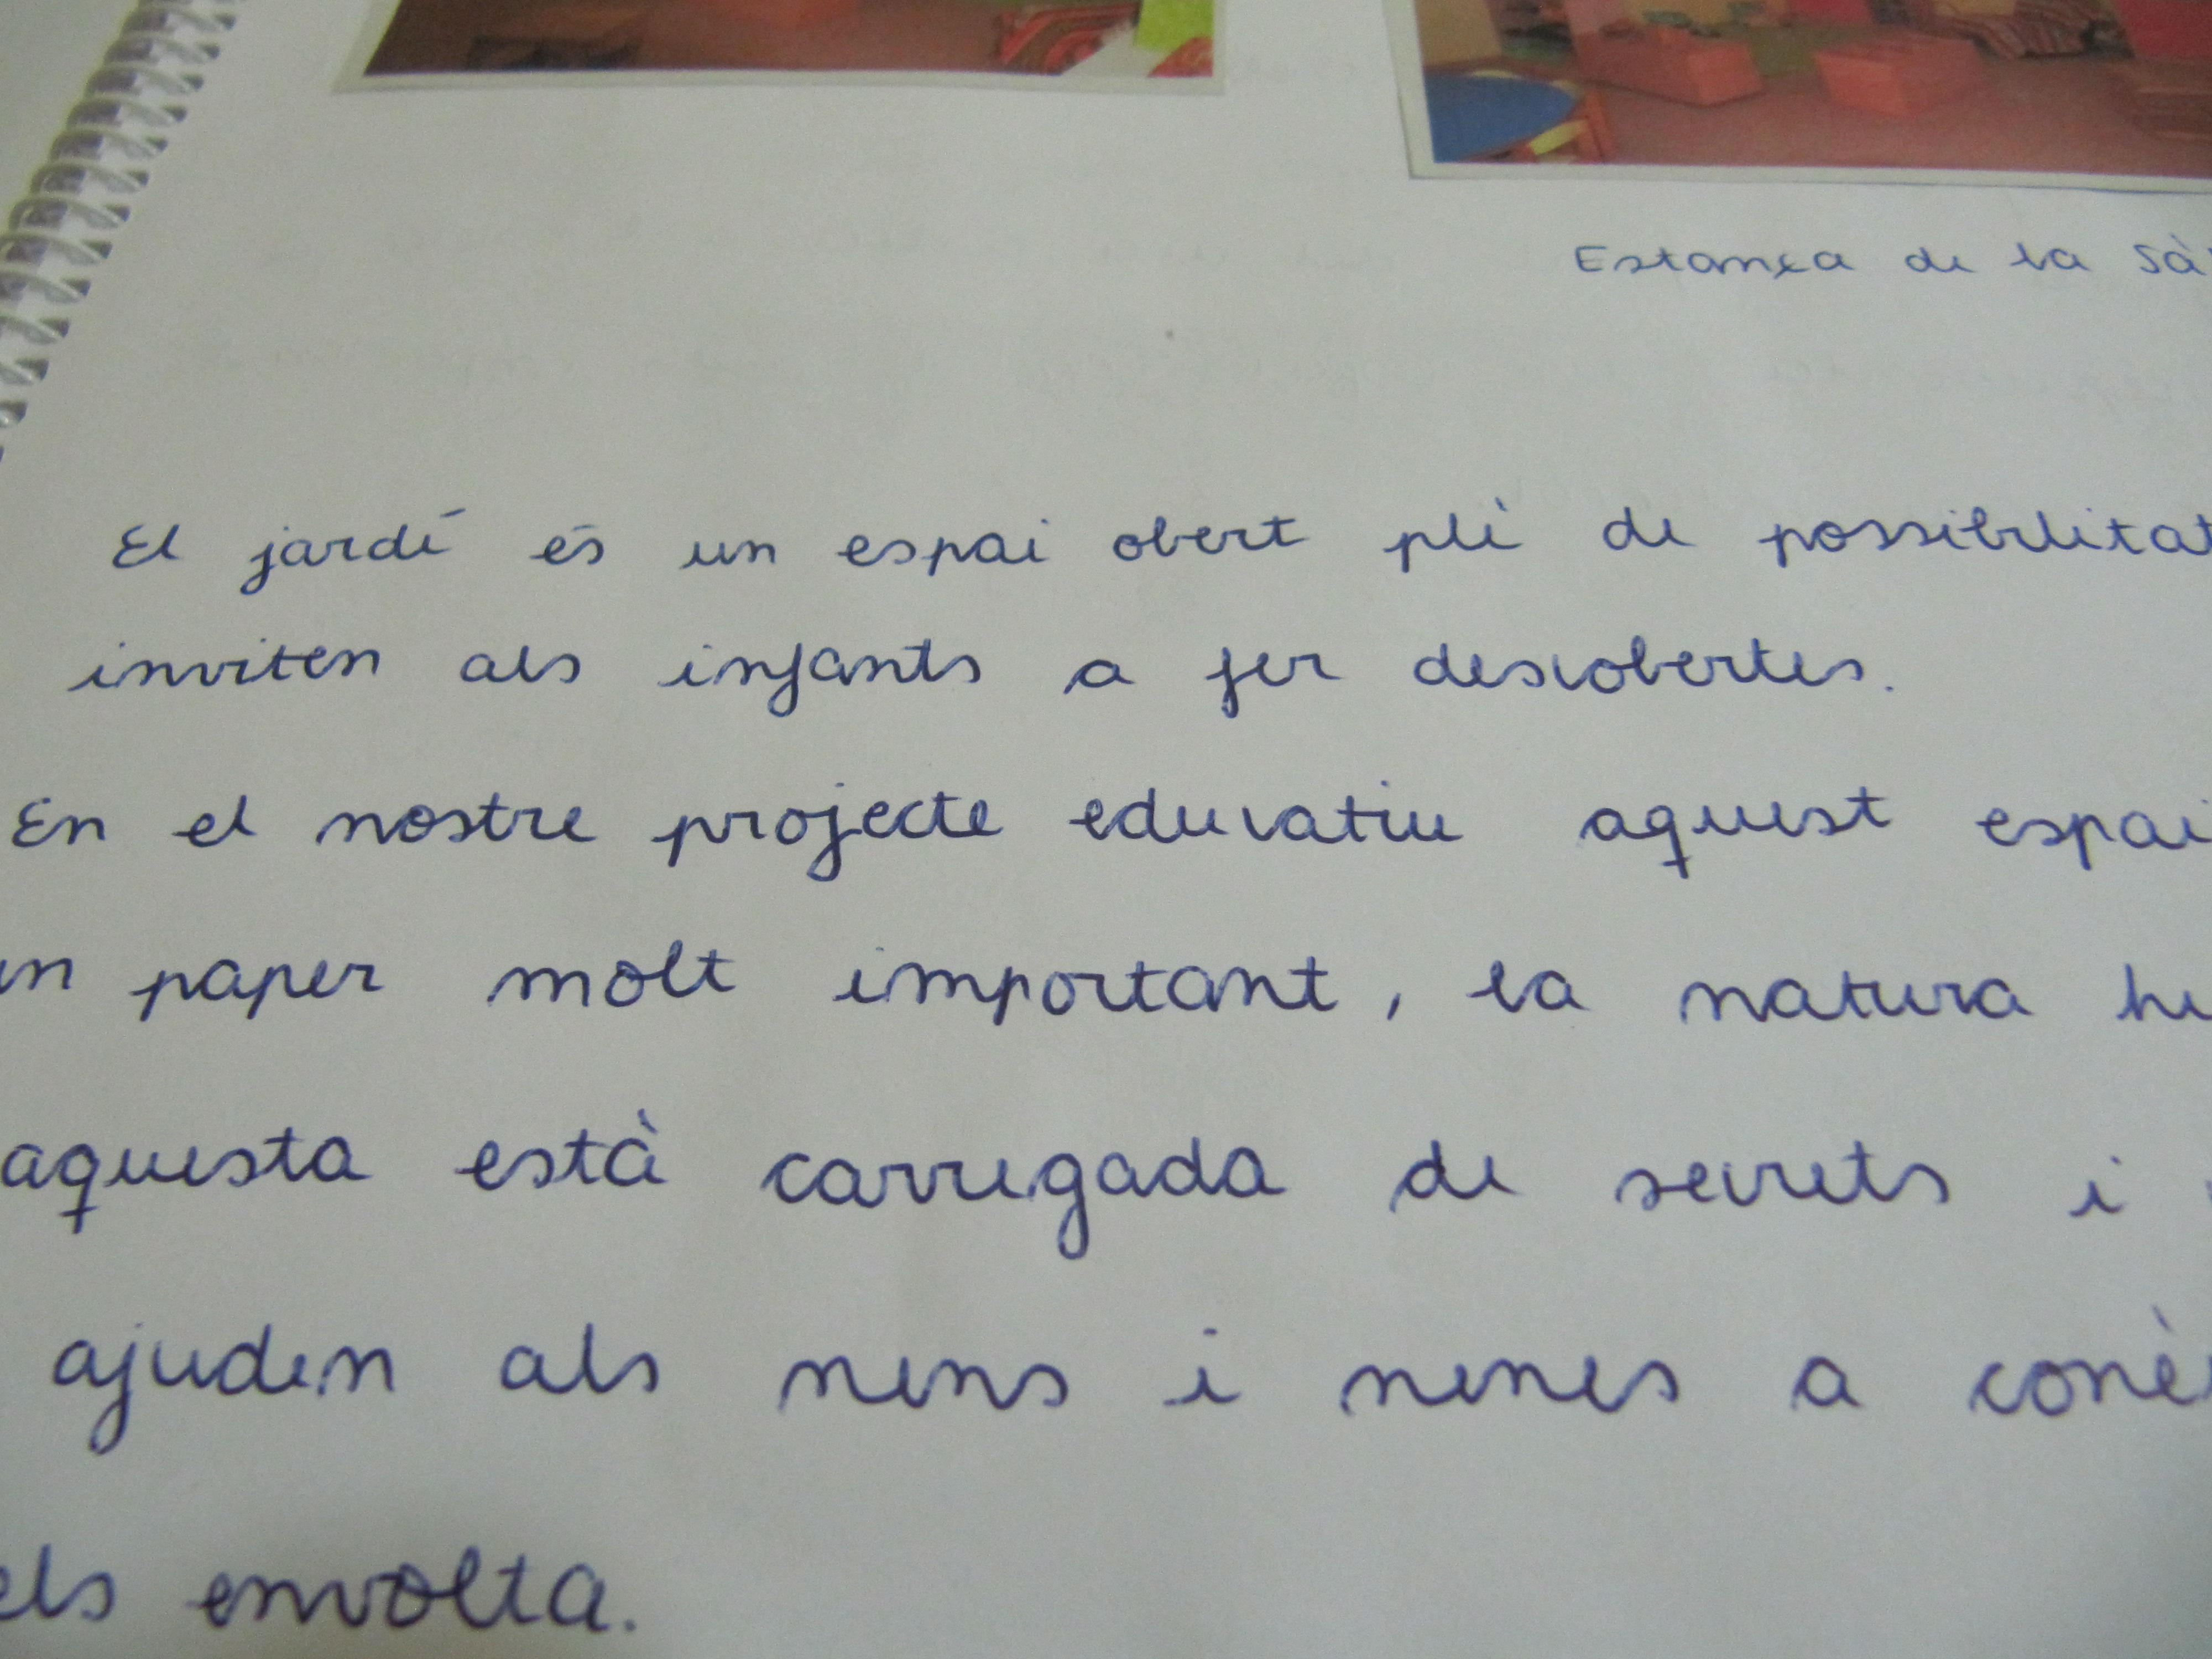 Estança de la Sà
El jardí és un espai obert plè de possibilitat
inviten als infants a fer descobertes.
En el nostre projecte educatiu aquest espai
un paper molt important, la natura he
aquesta està carregada de secrets i
ajuden als nens i nenes a conè
els envolta.